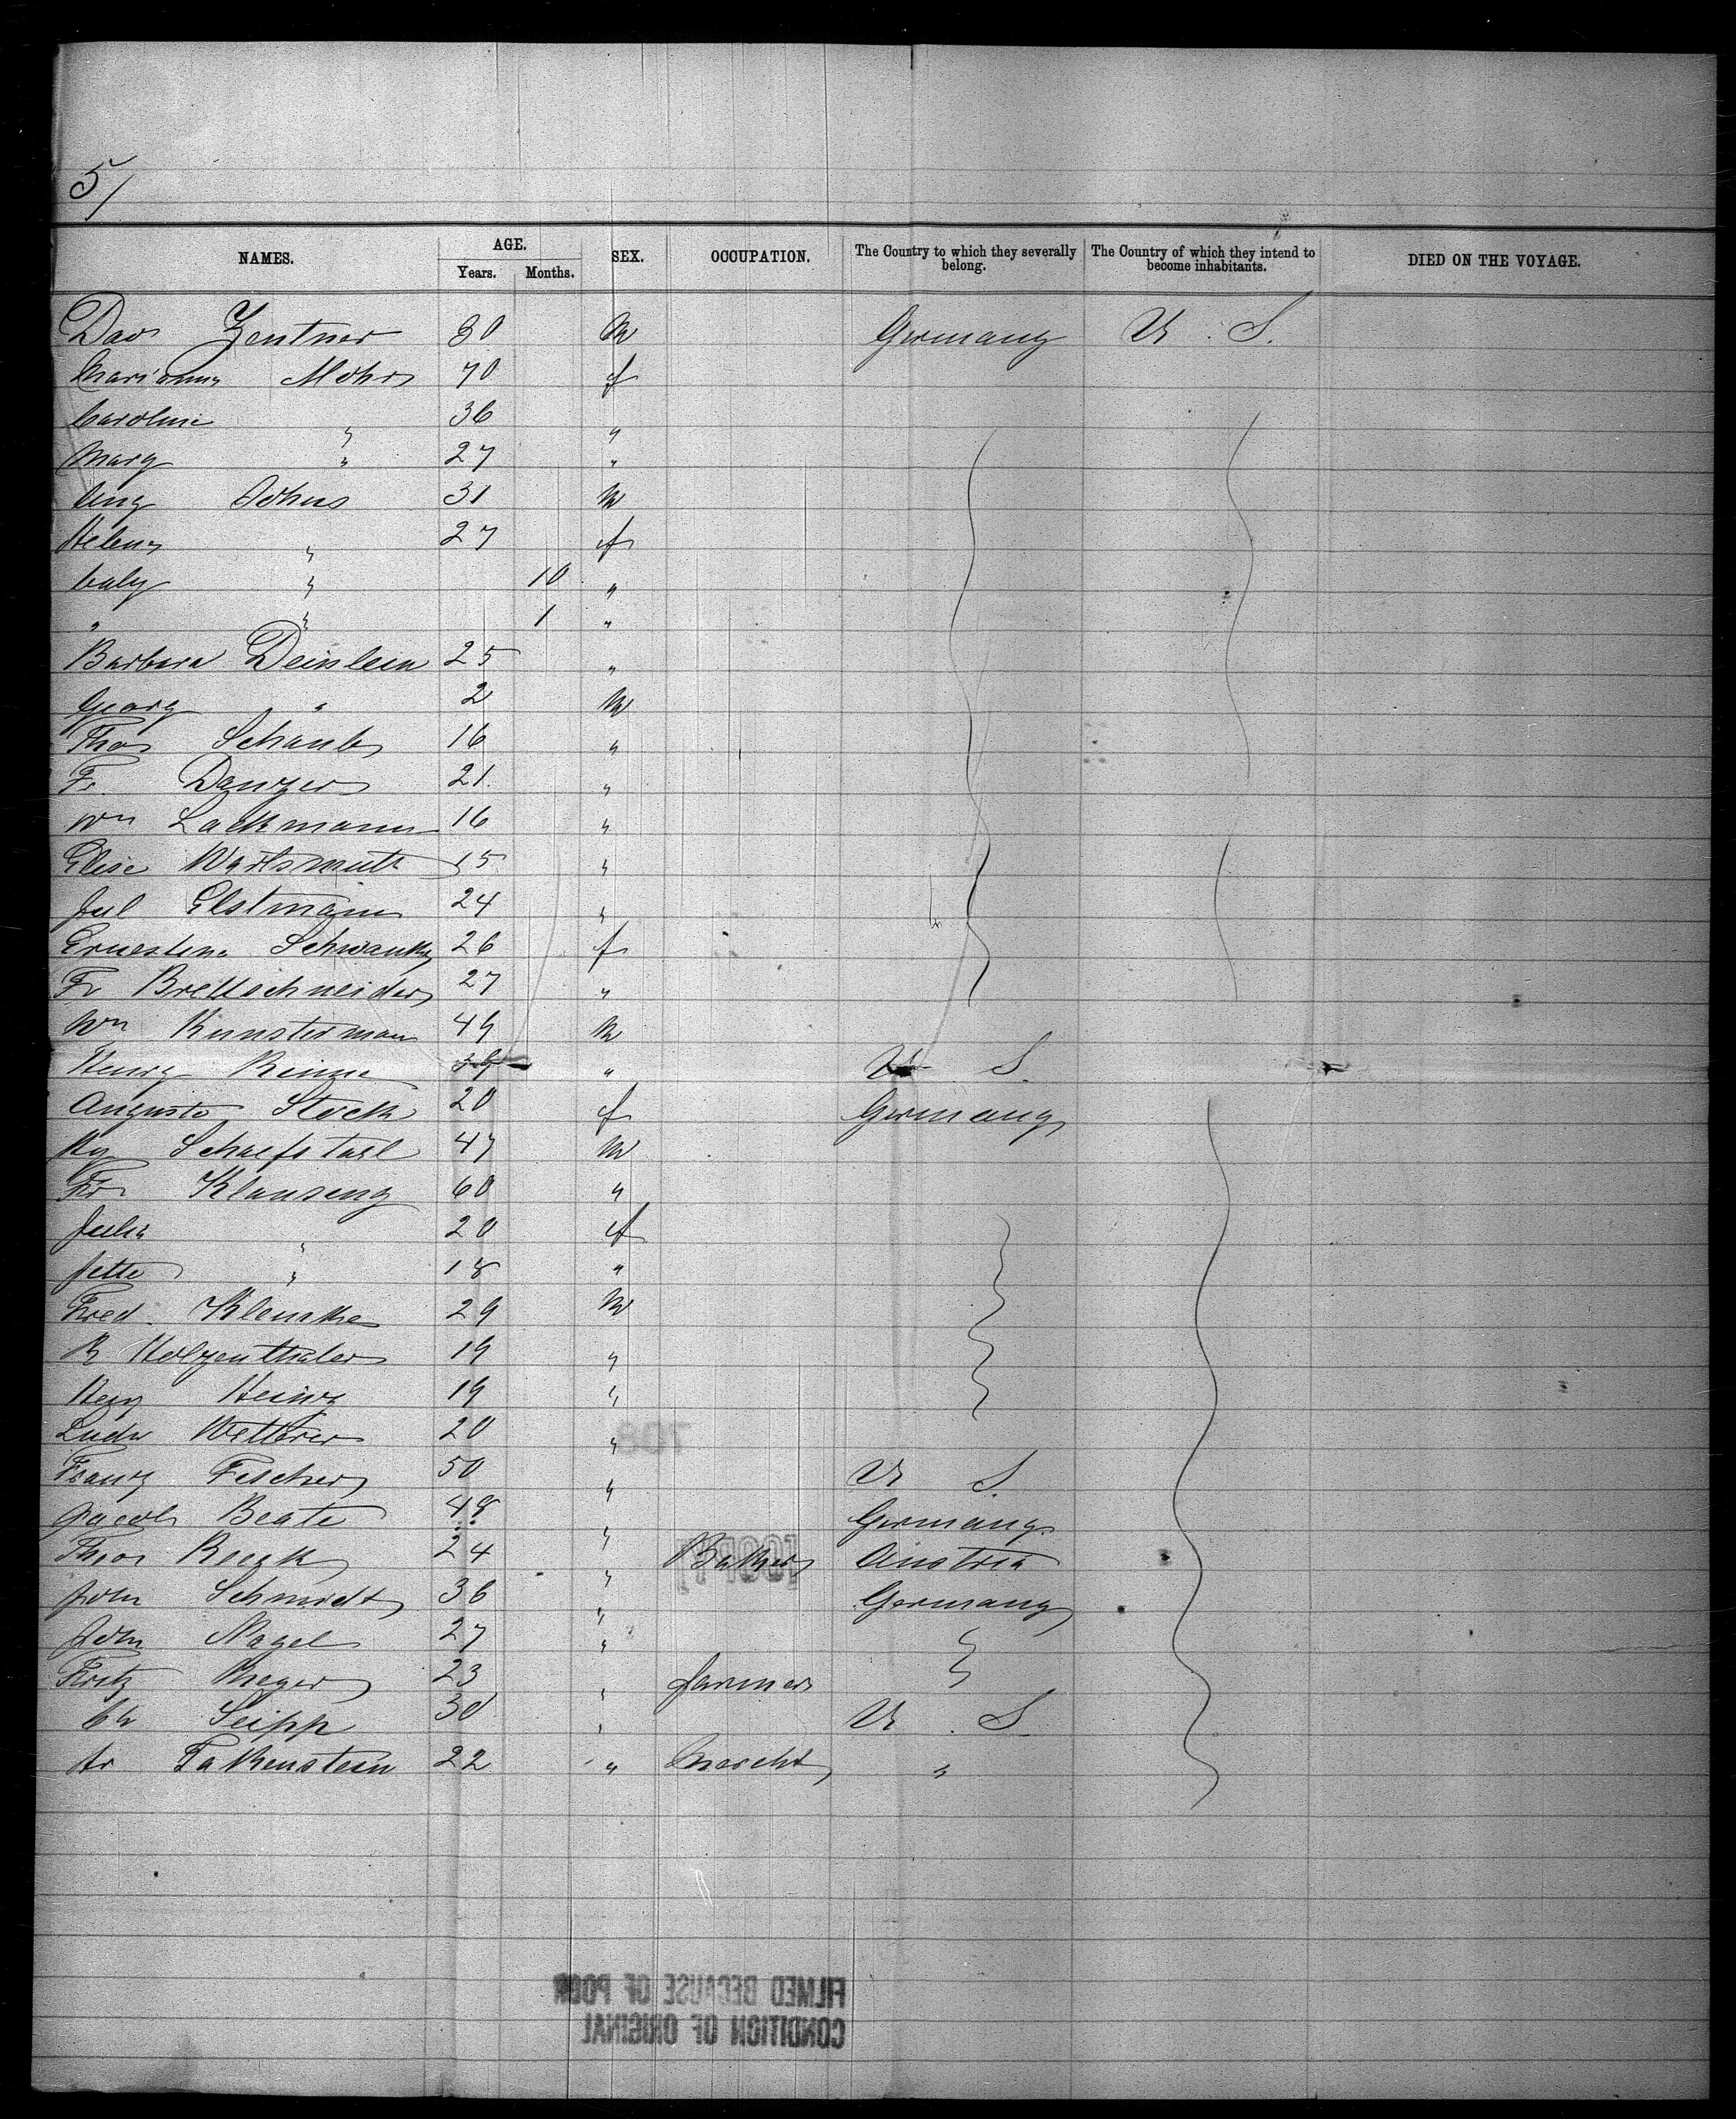 5/
NAMES. AGE. SEX. OCCUPATION. The Country to which they severally belong. The Country of which they intend to become inhabitants. DIED ON THE VOYAGE.
Years. Months.
Dav Zentner 30 M Germany U. S.
Marianna Mohr 70 f
Caroline " 36 "
Mary " 27 "
Aug Johns 31 M
Helena " 27 f
baby " 10 "
" " 1 "
Barbara Deinlein 25 "
Georg " 2 M
Thos Schaub 16 "
Fr. Danzer 21. "
Wm Lackmann 16 "
Elise 15 "
Jul Elstmann 24 "
Ernestine Schwanke 26 f
Fr Brettschneider 27 "
Wm Kunsterman 49 M
Henry Rinne 39 " U S.
Augusta Stock 20 f Germany
47 M
Fr Klausing 60 "
Julia " 20 f
Jette " 18 "
Fred. Klemke 29 M
R Holzenthaler 19 "
Hey Heinz 19 "
Ludw Wetterer 20 "
Franz Fischer 50 " U S.
Jacob Beate 48 " Germany
Theo 24 " Baker Austria
John Schmidt 36 " Germany
John Nagel 27 "
Fritz Meyer 23 " farmer
Ch Seipp 30 " U. S.
Fr Falkenstein 22 " "
708
POOR
FILMED BECAUSE OF POOR
CONDITION OF ORIGINAL